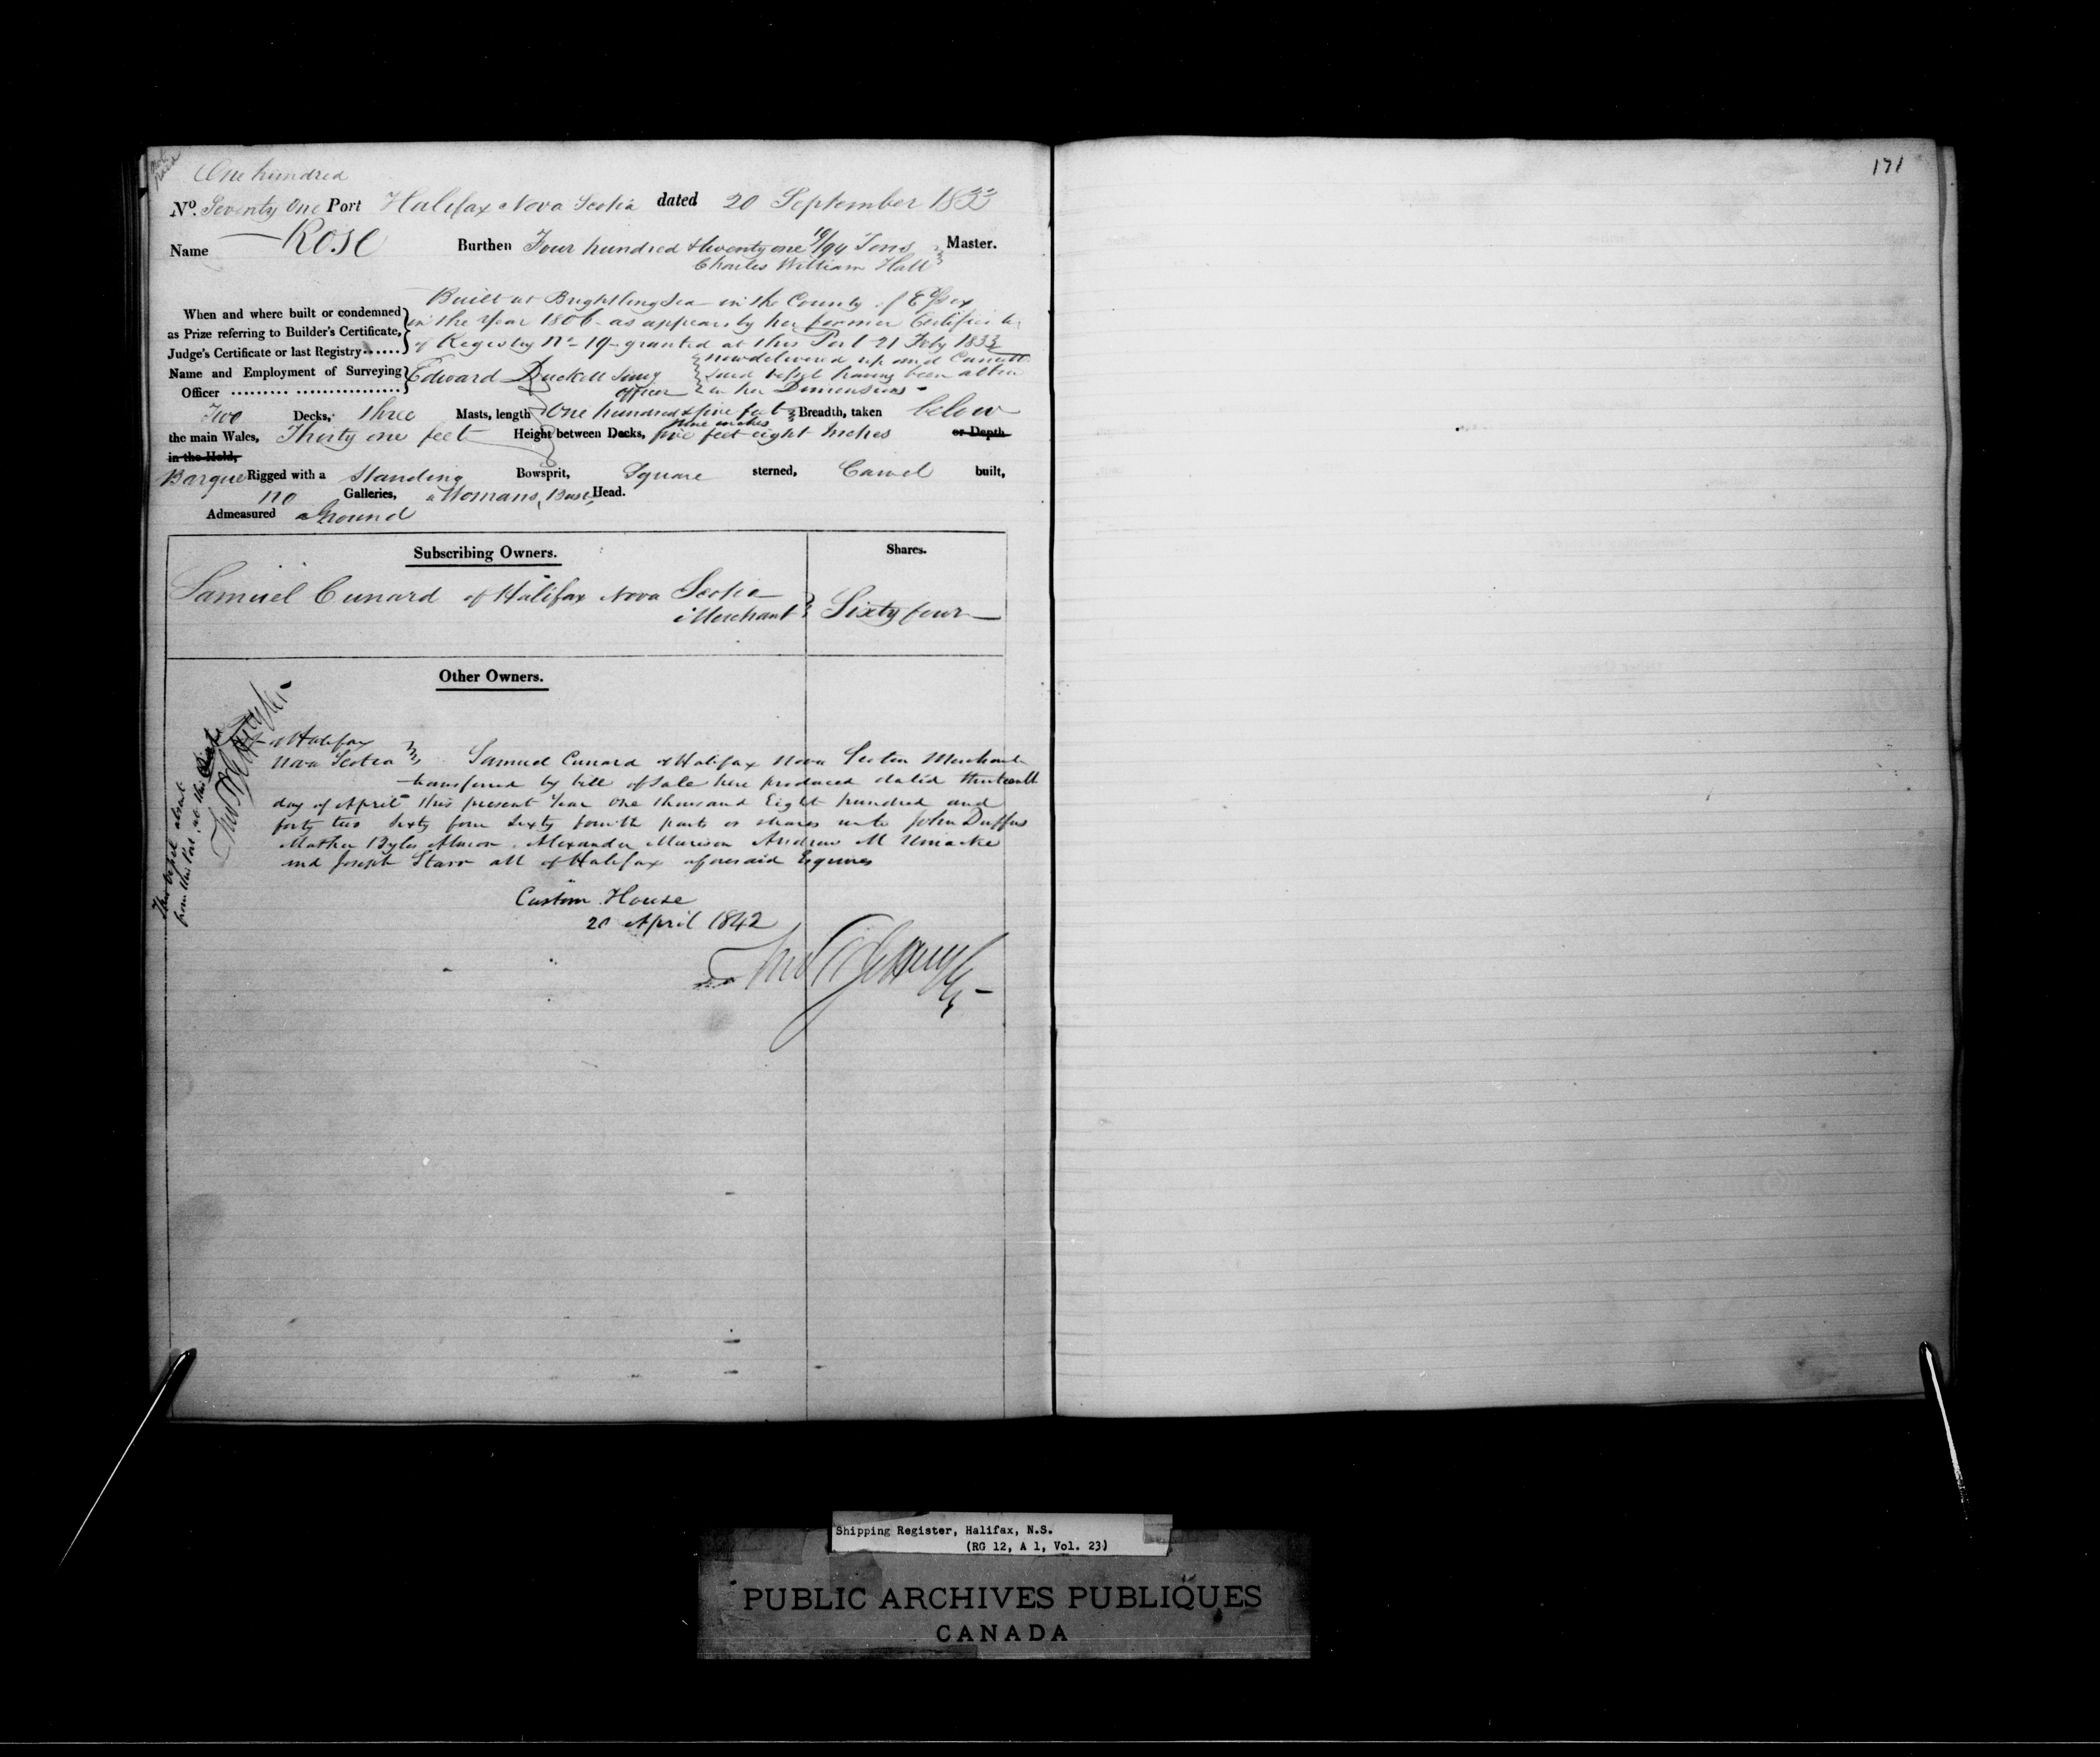 One hundred
No. Seventy One Port Halifax Nova Scotia dated 20 September 1833
Name Rose Burthen Four hundred & twenty one 10/94 Tons Master.
Charles William Hall
Built at Brightlingsea in the County of Essex
When and where built or condemned
in the Year 1806 as appears by her former Certificate
as Prize referring to Builder's Certificate,
of Registry No 19 granted at this Port 21 Feby 1833
Judge's Certificate or last Registry......
now delivered up and
Name and Employment of Surveying
Edward Duckett
said vessel having been
Officer
officer in her Dimensions
Two Decks, Three Masts, length One hundred & five feet Breadth, taken below
nine inches
the main Wales, Thirty one feet Height between Decks, five feet eight Inches or Depth
in the Hold,
Barque Rigged with a Standing Bowsprit, Square sterned, Carvel built,
no Galleries, a Womans Bust Head.
Admeasured aGround
Subscribing Owners. Shares.
Samuel Cunard of Halifax Nova Scotia
Merchant Sixty four
Other Owners.
Halifax
Nova Scotia Samuel Cunard of Halifax Nova Scotia Merchant
transferred by bill of Sale here produced dated thirteenth
day of April this present Year One thousand Eight hundred and
forty two Sixty four Sixty fourth parts or shares unto John Duffus
Mather Byles Almon Alexander Murison Andrew M Uniacke
and Joseph Starr all of Halifax aforesaid Esquires
Custom House
20 April 1842
This vessel absent
from this Port at this
171
Shipping Register, Halifax, N.S.
(RG 12, A 1, Vol. 23)
PUBLIC ARCHIVES PUBLIQUES
CANADA